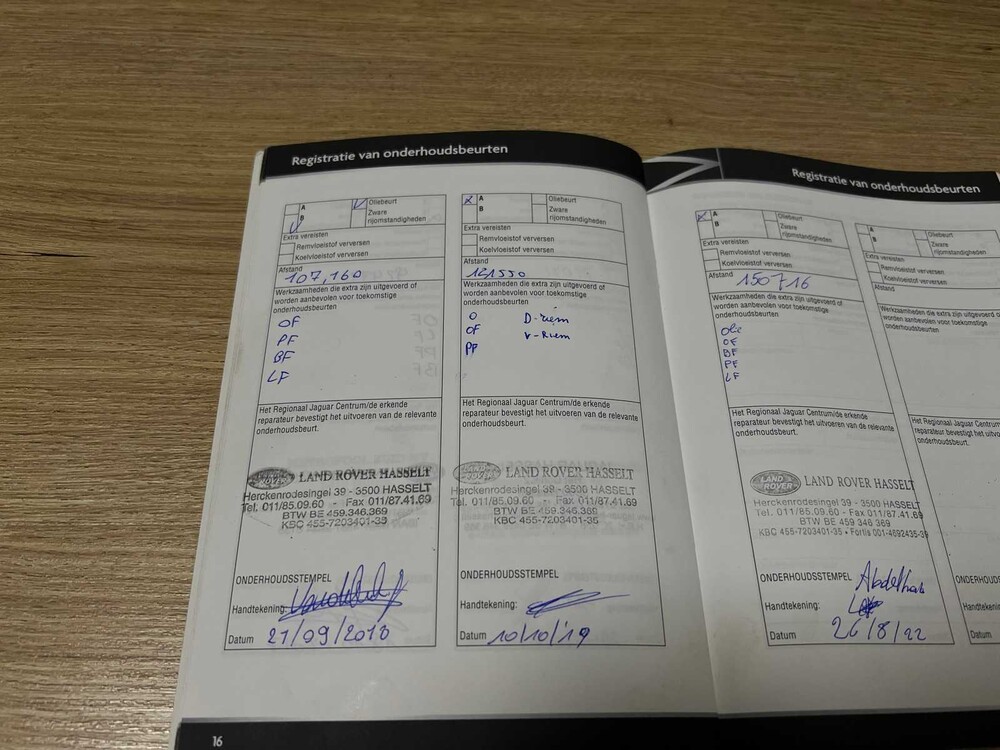 Registratie van onderhoudsbeurten
A
B
Oliebeurt
Zware
rijomstandigheden
Extra vereisten
Remvloeistof verversen
Koelvloeistof verversen
Afstand
107,160
Werkzaamheden die extra zijn uitgevoerd of
worden aanbevolen voor toekomstige
onderhoudsbeurten
OF
PF
BF
LF
Het Regionaal Jaguar Centrum/de erkende
reparateur bevestigt het uitvoeren van de relevante
onderhoudsbeurt.
LAND ROVER HASSELT
Herckenrodesingel 39 - 3500 HASSELT
Tel. 011/85.09.60 - Fax 011/87.41.69
BTW BE 459.346.369
KBC 455-7203401-35
ONDERHOUDSSTEMPEL
Handtekening:
Datum 21/09/2018
A
B
Oliebeurt
Zware
rijomstandigheden
Extra vereisten
Remvloeistof verversen
Koelvloeistof verversen
Afstand
121550
Werkzaamheden die extra zijn uitgevoerd of
worden aanbevolen voor toekomstige
onderhoudsbeurten
O D-riem
OF V-Riem
PF
Het Regionaal Jaguar Centrum/de erkende
reparateur bevestigt het uitvoeren van de relevante
onderhoudsbeurt.
LAND ROVER HASSELT
Herckenrodesingel 39 - 3500 HASSELT
Tel. 011/85.09.60 - Fax 011/87.41.69
BTW BE 459.346.369
KBC 455-7203401-35
ONDERHOUDSSTEMPEL
Handtekening:
Datum 10/10/19
16
Registratie van onderhoudsbeurten
A
B
Oliebeurt
Zware
rijomstandigheden
Extra vereisten
Remvloeistof verversen
Koelvloeistof verversen
Afstand
150716
Werkzaamheden die extra zijn uitgevoerd of
worden aanbevolen voor toekomstige
onderhoudsbeurten
Olie
OF
BF
PF
LF
Het Regionaal Jaguar Centrum/de erkende
reparateur bevestigt het uitvoeren van de relevante
onderhoudsbeurt.
LAND ROVER
LAND ROVER HASSELT
Herckenrodesingel 39 - 3500 HASSELT
Tel. 011/85.09.60 - Fax 011/87.41.69
BTW BE 459 346 369
KBC 455-7203401-35 - Fortis 001-4692435-39
ONDERHOUDSSTEMPEL
Handtekening:
Datum 26/8/22
A
B
Oliebeurt
Zware
rijomstandigheden
Extra vereisten
Remvloeistof verversen
Koelvloeistof verversen
Afstand
Werkzaamheden die extra zijn uitgevoerd
worden aanbevolen voor toekomstige
onderhoudsbeurten
Het Regionaal Jaguar Centrum/de
reparateur bevestigt het uitvoeren
onderhoudsbeurt.
Datum